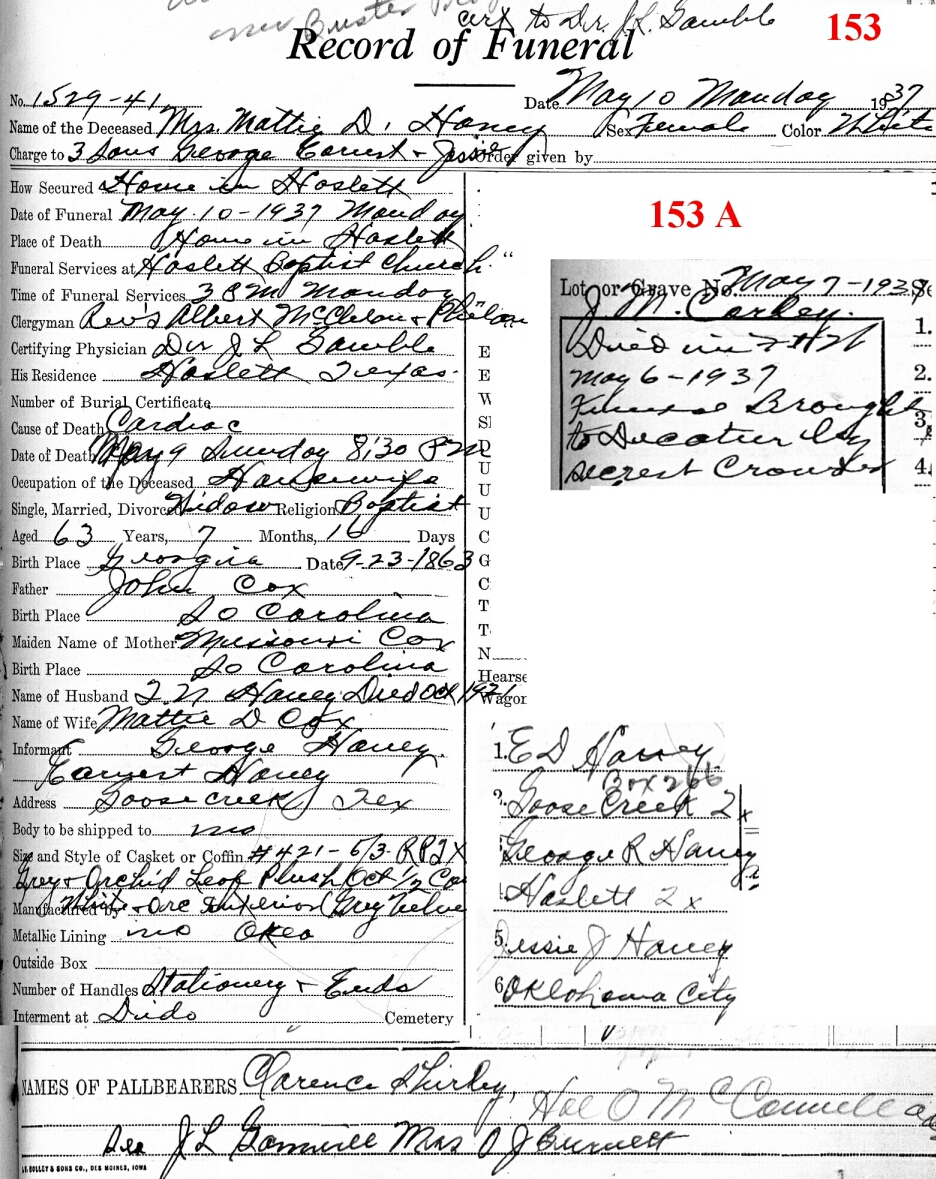 cert to Dr. J.L. Gamble
153
Record of Funeral
No. 1529-41 Date May 10 Monday 1937
Name of the Deceased Mrs. Mattie D. Haney Sex Female Color White
Charge to 3 Sons George Earnest + Jessie Order given by
How Secured Home in Haslett
Date of Funeral May-10-1937 Monday
Place of Death Home in Haslett
Funeral Services at Haslett Baptist Church
Time of Funeral Services 3 P M Monday
Clergyman Rev's Albert
Certifying Physician Dr J L Gamble
His Residence Haslett Texas
Number of Burial Certificate
Cause of Death Cardiac
Date of Death May 9 Sunday 8:30 PM
Occupation of the Deceased Housewife
Single, Married, Divorced Widow Religion Baptist
Aged 63 Years, 7 Months, 16 Days
Birth Place Georgia Date 9-23-1863
Father John Cox
Birth Place So Carolina
Maiden Name of Mother Missouri Cox
Birth Place So Carolina
Name of Husband Haney Died Oct 1921
Name of Wife Mattie D Cox
Informant George Haney.
Earnest Haney
Address Goosecreek Tex
Body to be shipped to no
Size and Style of Casket or Coffin #421-6/3-
Grey + Orchid Leof Plush Oct 1/2
Manufactured by White + Superior Grey
Metallic Lining no
Outside Box
Number of Handles Stationery + Ends
Interment at Dido Cemetery
153 A
Lot or Grave No. May 7-193
J. M. Corley.
Died in
May 6-1937
Brought
to Decatur by
Secrest Crowder
1.
2.
3.
4.
E
E
W
S
D
U
U
U
C
G
C
T
T
N
Hearse
Wagon
1. E D Haney
Box 266
2. Goose Creek Tx
George R Haney
Haslett Tx
5. Jessie J Haney
6. Oklohoma City
NAMES OF PALLBEARERS Clarence Shirley,
Hal O McConnell
J L Mrs O J Burnett
& SONS CO., DES MOINES, IOWA